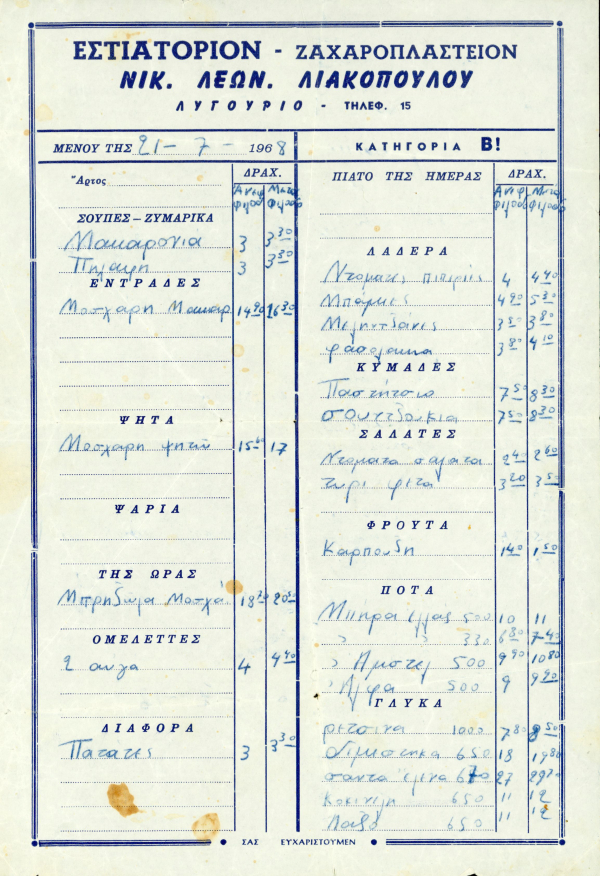 ΕΣΤΙΑΤΟΡΙΟΝ - ΖΑΧΑΡΟΠΛΑΣΤΕΙΟΝ
ΝΙΚ. ΛΕΩΝ. ΛΙΑΚΟΠΟΥΛΟΥ
ΛΥΓΟΥΡΙΟ - ΤΗΛΕΦ. 15
ΜΕΝΟΥ ΤΗΣ 21-7-1968
Ἄρτος
ΔΡΑΧ.
Ανευ Μετα
Φιλοδ Φιλοδ
ΣΟΥΠΕΣ–ΖΥΜΑΡΙΚΑ
Μακαρονια 3 3 30
Πηλαφη 3 3 30
ΕΝΤΡΑΔΕΣ
Μοσχαρη Μακαρ 14 90 16 30
ΨΗΤΑ
Μοσχαρη ψητω 15 17
ΨΑΡΙΑ
ΤΗΣ ΩΡΑΣ
Μπρηζωλα Μοσχά 18 20
ΟΜΕΛΕΤΤΕΣ
2 αυγα 4 4 40
ΔΙΑΦΟΡΑ
Πατατες 3 3 30
ΚΑΤΗΓΟΡΙΑ Β!
ΠΙΑΤΟ ΤΗΣ ΗΜΕΡΑΣ
ΔΡΑΧ.
Ανευ Μετα
Φιλοδ Φιλοδ
ΛΑΔΕΡΑ
Ντοματες πιπεριές 4 4 40
Μπάμιες 4 90 5 30
Μεληντζάνες 3 50 3 80
φασολακια 3 80 4 10
ΚΥΜΑΔΕΣ
Παστητσιο 7 50 8 30
σουτζουκια 7 50 8 30
ΣΑΛΑΤΕΣ
Ντοματα σαλατα 2 40 2 60
τυρι φετα 3 20 3 50
ΦΡΟΥΤΑ
Καρπουζη 1 40 1 50
ΠΟΤΑ
Μπηρα ελλας 500 10 11
» » 330 6 80 7-40
» Αμστελ 500 9 90 10 80
» Αλφα 500 9 9 90
ΓΛΥΚΑ
ρετσινα 1000 7 80 8 50
Διμεστηκα 650 18 19 80
σαντα έλενα 670 27 29 70
Κοκινελη 650 11 12
650 11 12
ΣΑΣ ΕΥΧΑΡΙΣΤΟΥΜΕΝ